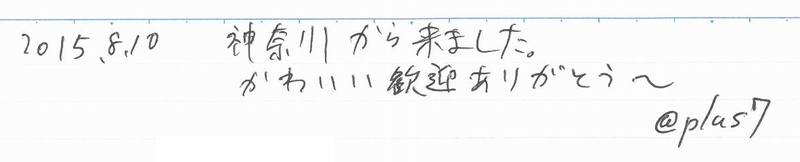 2015.8.10 神奈川から来ました。
かわいい歓迎ありがとう～
@plus7